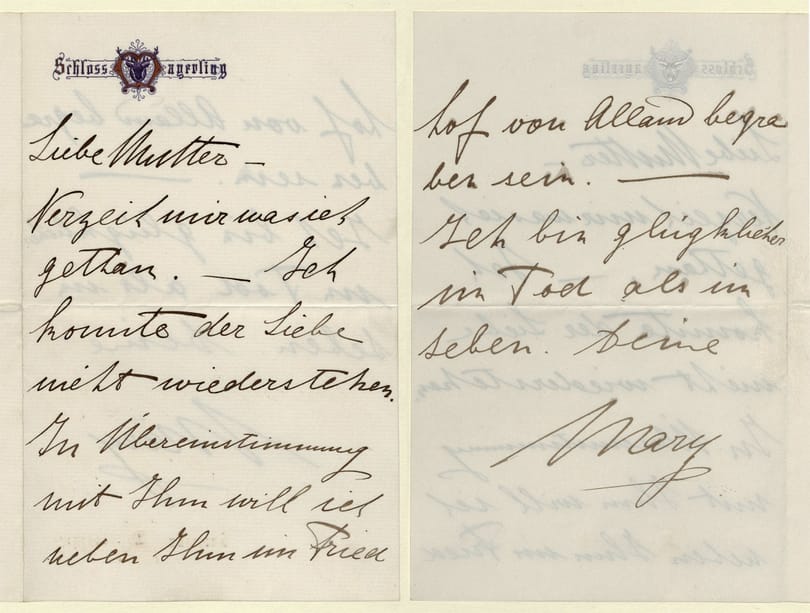 Schloss Mayerling
Liebe Mutter –
Verzeih mir was ich
gethan. – Ich
konnte der Liebe
nicht wiederstehen.
In Übereinstimmung
mit Ihm will ich
neben Ihm im Fried
hof von Alland begra
ben sein. –
Ich bin glügklicher
im Tod als im
Leben. Deine
Mary